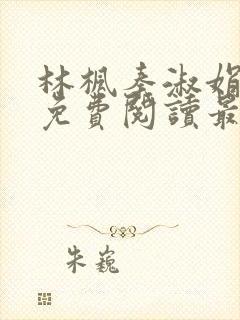 林楓秦淑娟
免費閱讀最
朱巍